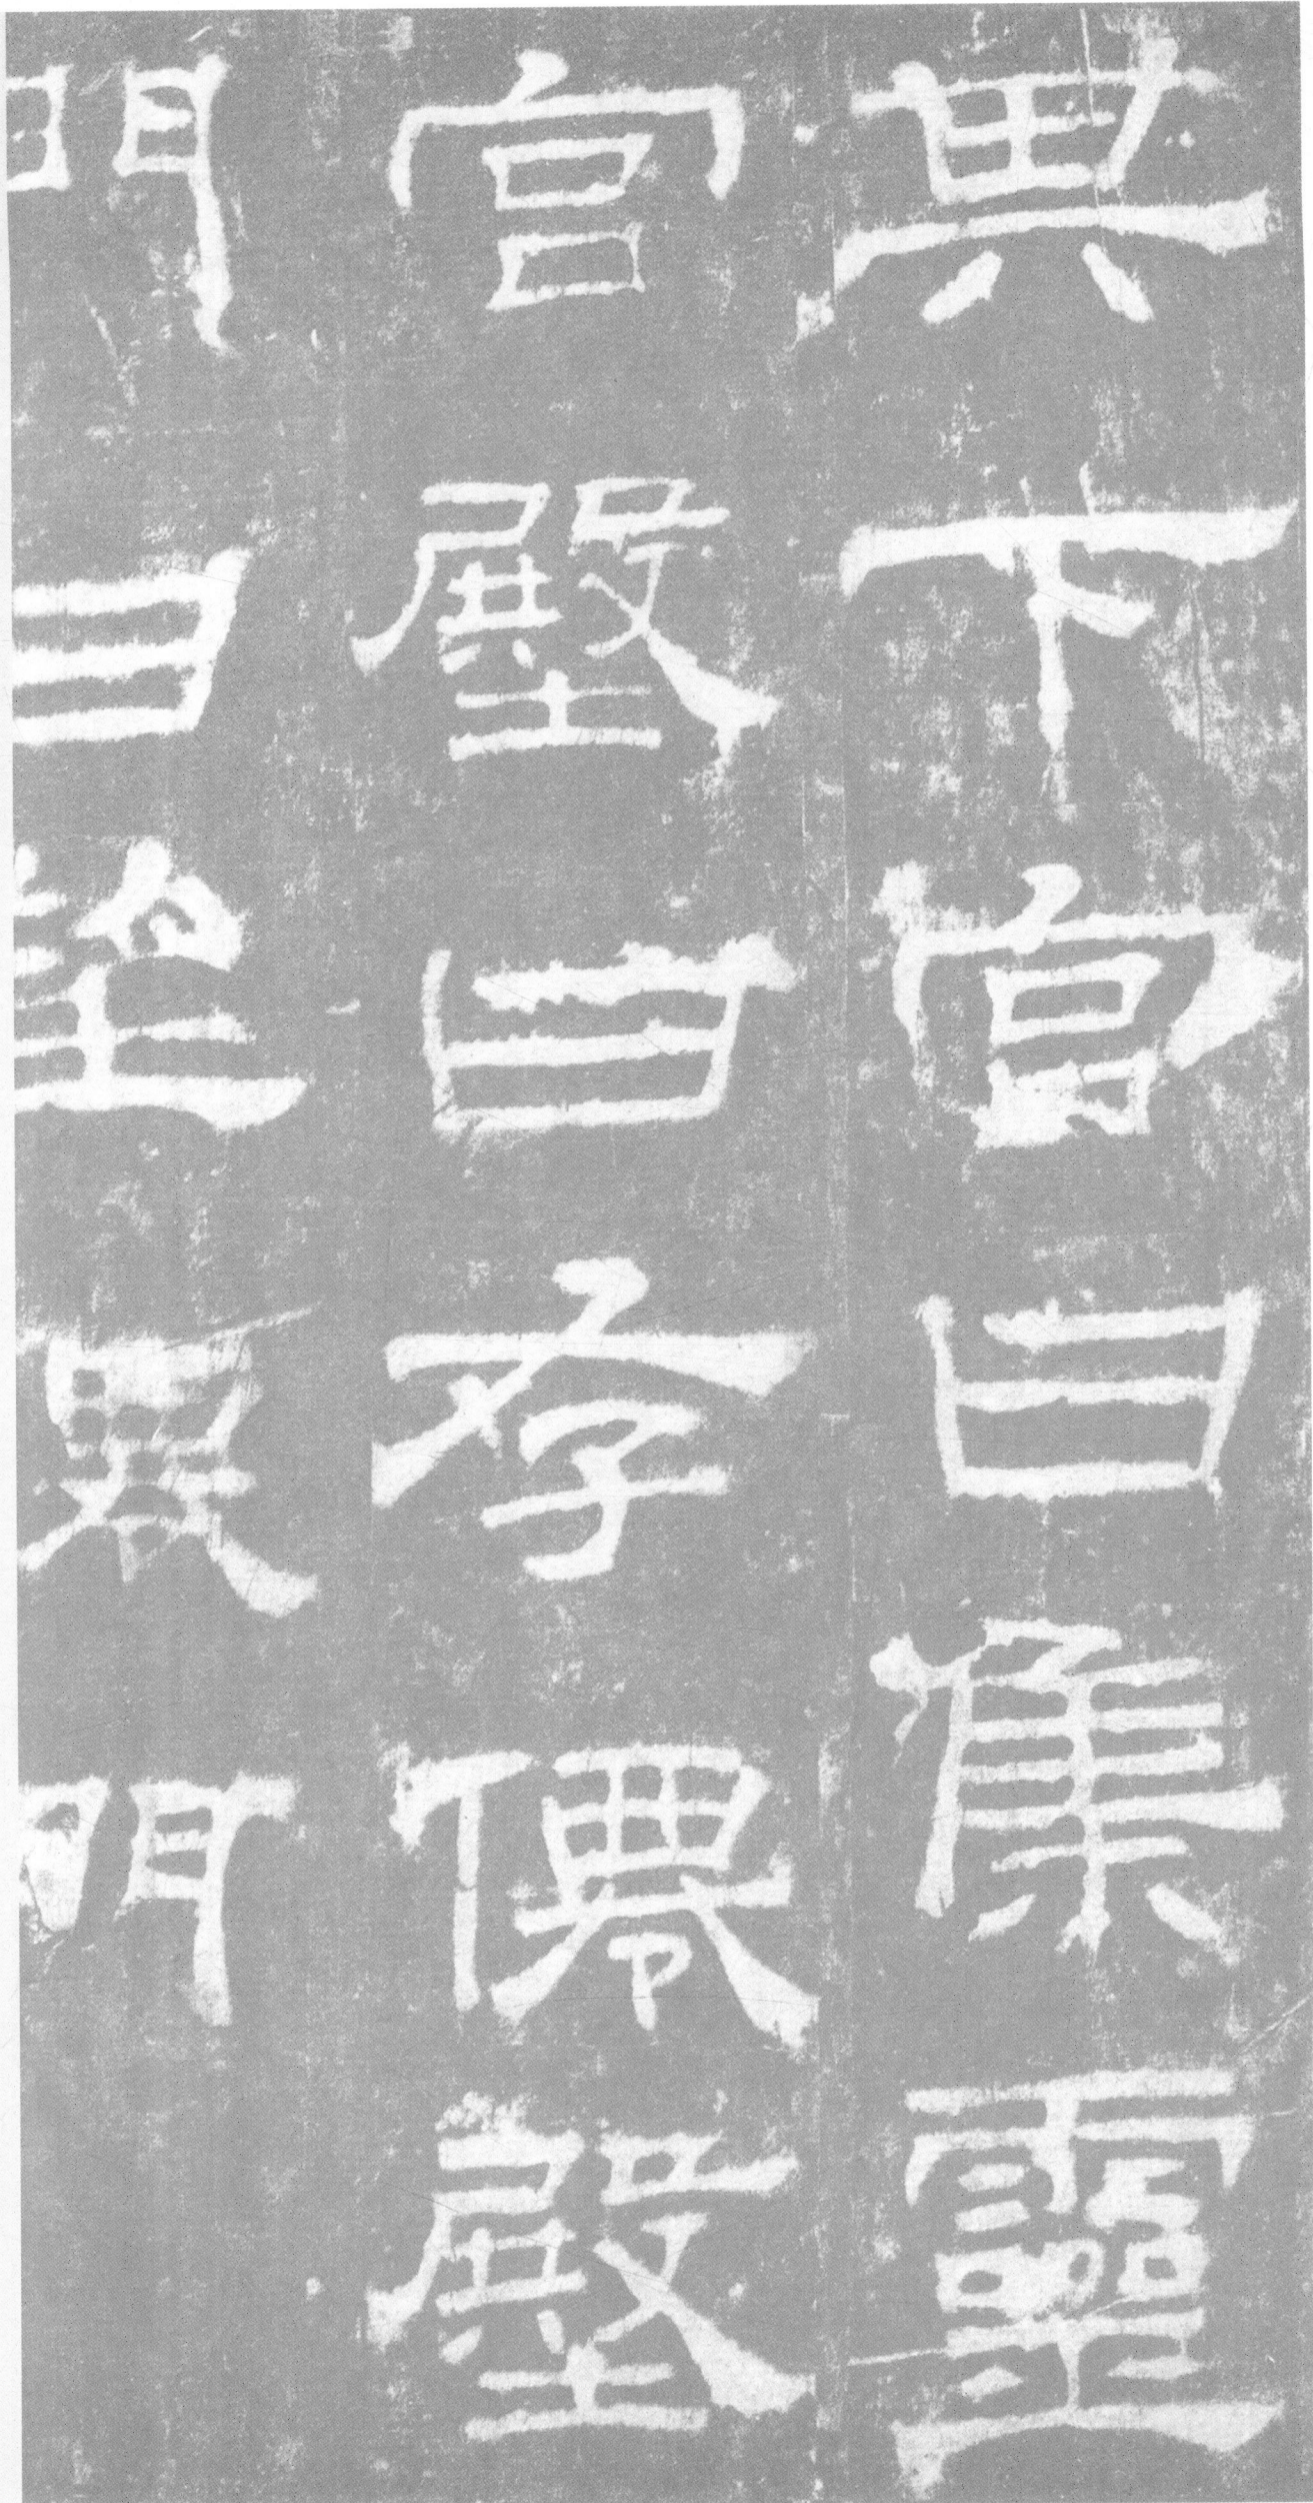 其下宮曰集靈
宮壂曰存僊壂
門曰望僊門